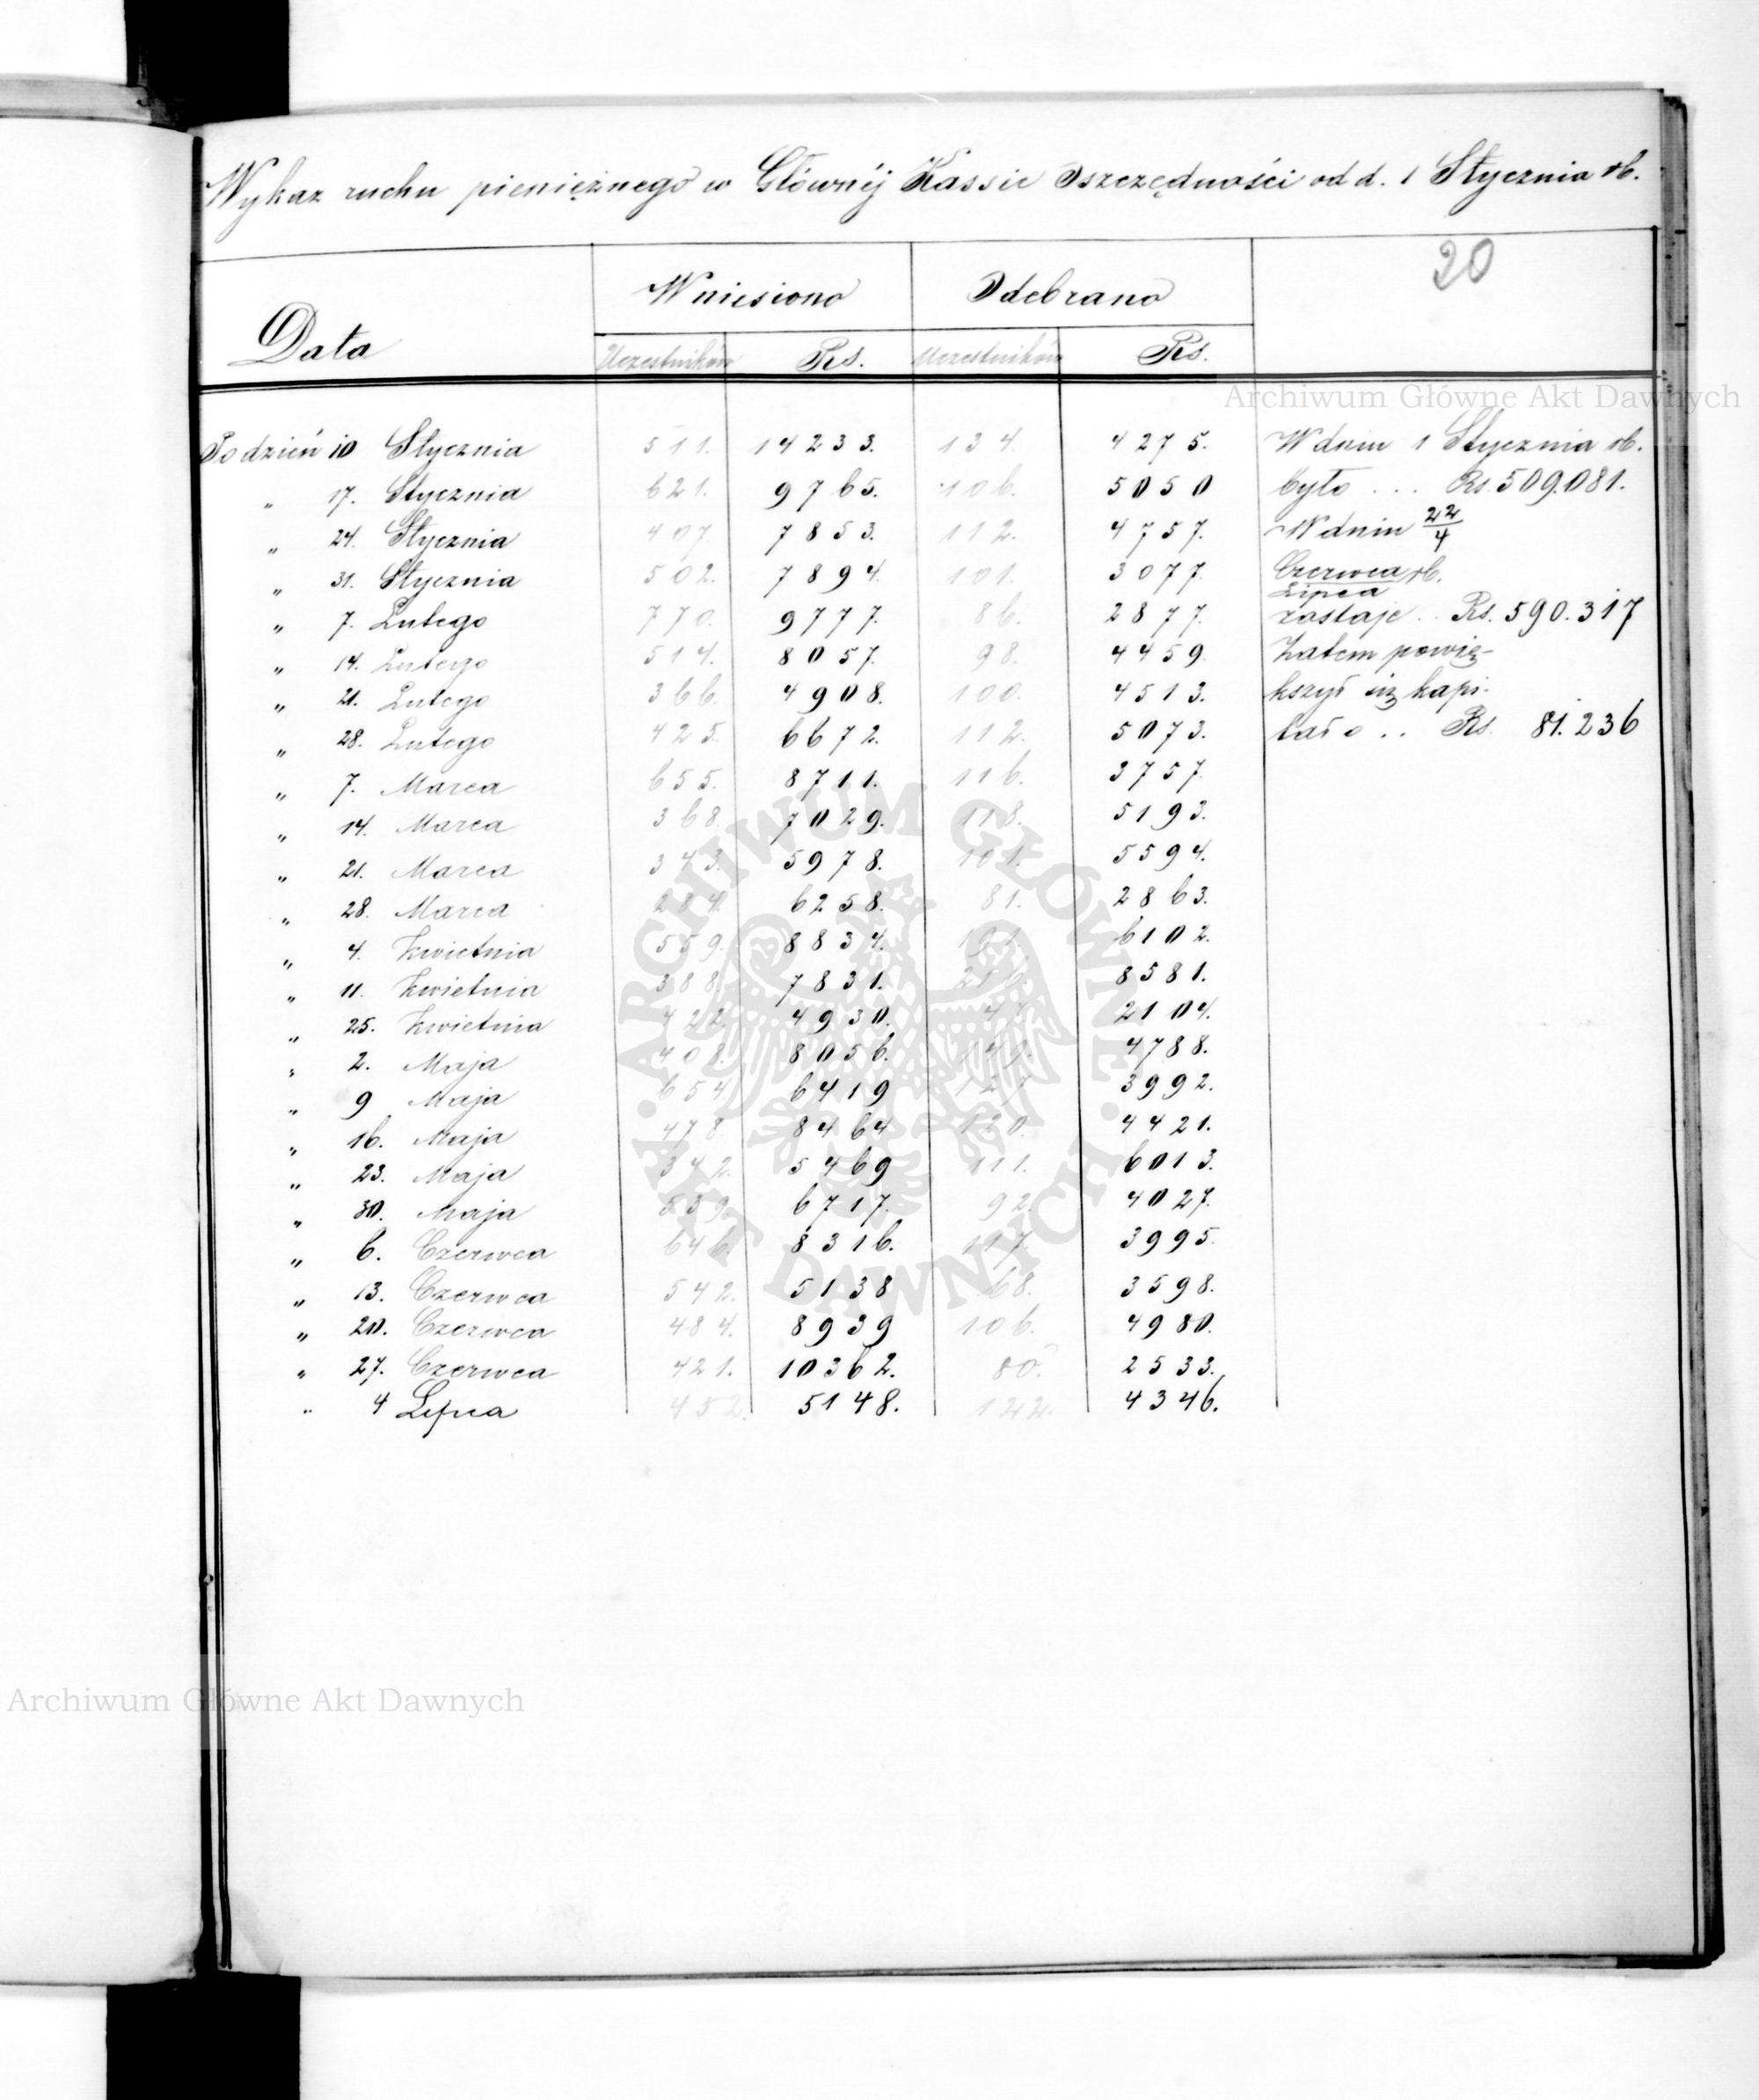 Wykaz ruchu pieniężnego w Głównéj Kassie Oszczędności od d. 1 Stycznia rb.
20
Data Wniesiono Odebrano
Uczestników Rs. Uczestników Rs.
Archiwum Główne Akt Dawnych
Po dzień 10 Stycznia 511. 14233. 134. 4275. W dniu 1 Stycznia rb.
" 17. Stycznia 621. 9765. 106. 5050 było . . . Rs. 509.081.
" 24. Stycznia 407. 7853. 112. 4757. W dniu 22/4
" 31. Stycznia 502. 7894. 101. 3077. Czerwca/Lipca rb.
" 7. Lutego 770. 9777. 86. 2877. zostaje . . Rs. 590.317
" 14. Lutego 514. 8057. 98. 4459. Zatem powię-
" 21. Lutego 366. 4908. 100. 4513. kszył się kapi-
" 28. Lutego 425. 6672. 112. 5073. tał o . . Rs. 81.236
" 7. Marca 655. 8711. 116. 3757.
" 14. Marca 368. 7029. 118. 5193.
" 21. Marca 343. 5978. 101. 5594.
" 28. Marca 284. 6258. 81. 2863.
" 4. Kwietnia 559. 8834. 6102.
" 11. Kwietnia 388. 7831. 8581.
" 25. Kwietnia 422. 4930. 2104.
" 2. Maja 408. 8056. 4788.
" 9 Maja 654 6419 127. 3992.
" 16. Maja 478. 8464 4421.
" 23. Maja 342. 5469 111. 6013.
" 30. Maja 539. 6717. 92. 4027.
" 6. Czerwca 646. 8316. 117. 3995.
" 13. Czerwca 542. 5138 68. 3598.
" 20. Czerwca 484. 8939 106. 4980.
" 27. Czerwca 421. 10362. 80. 2533.
" 4 Lipca 452. 5148. 122. 4346.
ARCHIWUM GŁÓWNE AKT DAWNYCH
Archiwum Główne Akt Dawnych